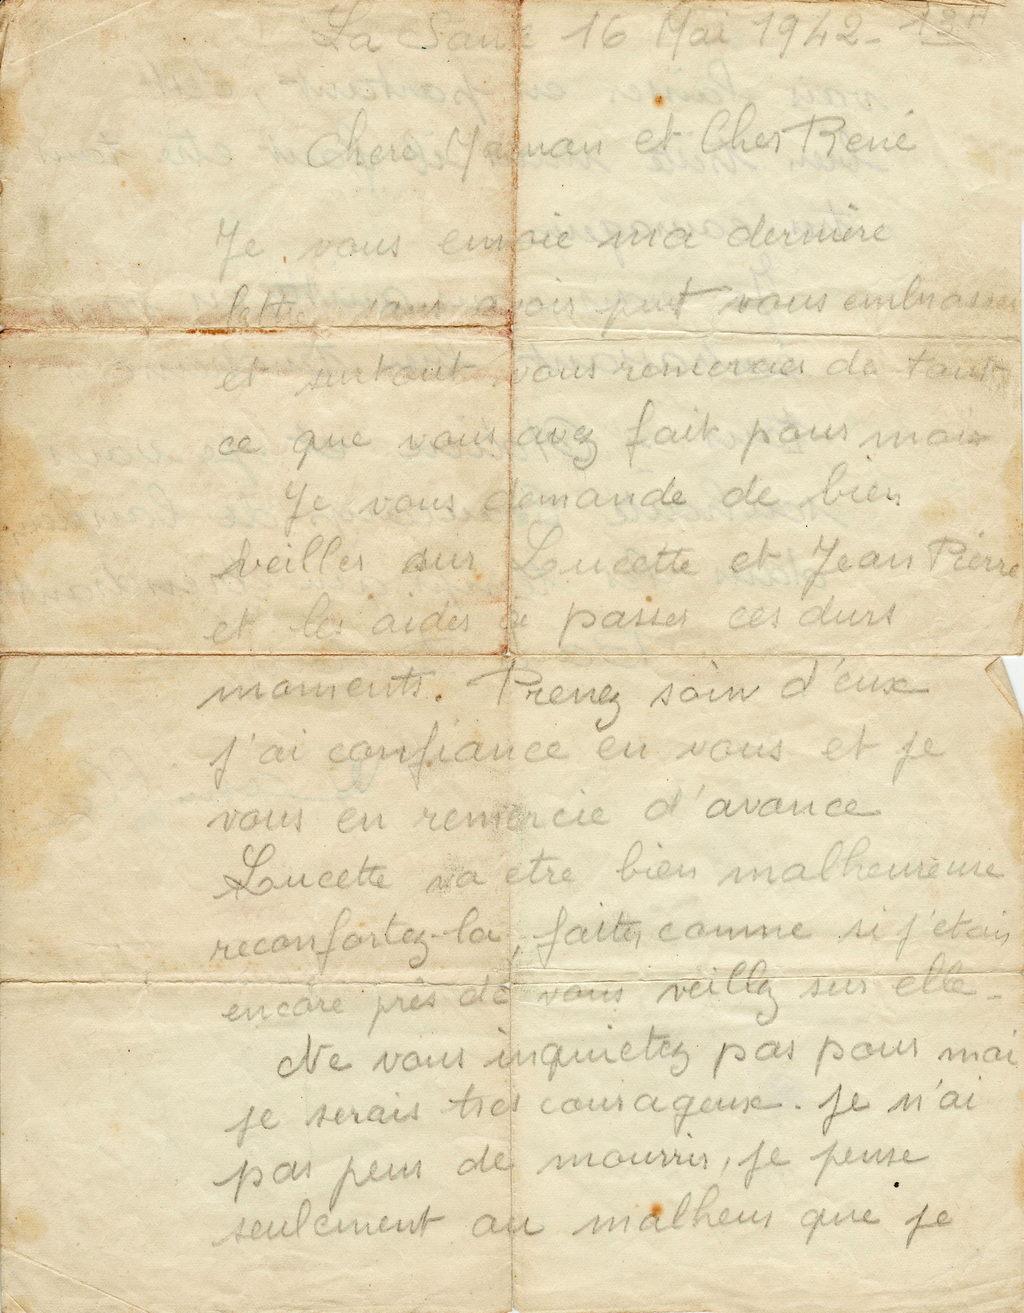 La Santé 16 Mai 1942 - 13H
Chere Maman et Cher René
Je vous envoie ma dernière
lettre sans avoir put vous embrasser
et surtout vous remercier de tout
ce que vous avez fait pour moi
Je vous demande de bien
veiller sur Lucette et Jean Pierre
et les aider a passer ces durs
moments. Prenez soin d'eux
j'ai confiance en vous et je
vous en remercie d'avance
Lucette va etre bien malheureuse
reconfortez-la, faites comme si j'étais
encore près de vous veillez sur elle -
Ne vous inquietez pas pour moi
je serais très courageux. Je n'ai
pas peur de mourrir, je pense
seulement au malheur que je